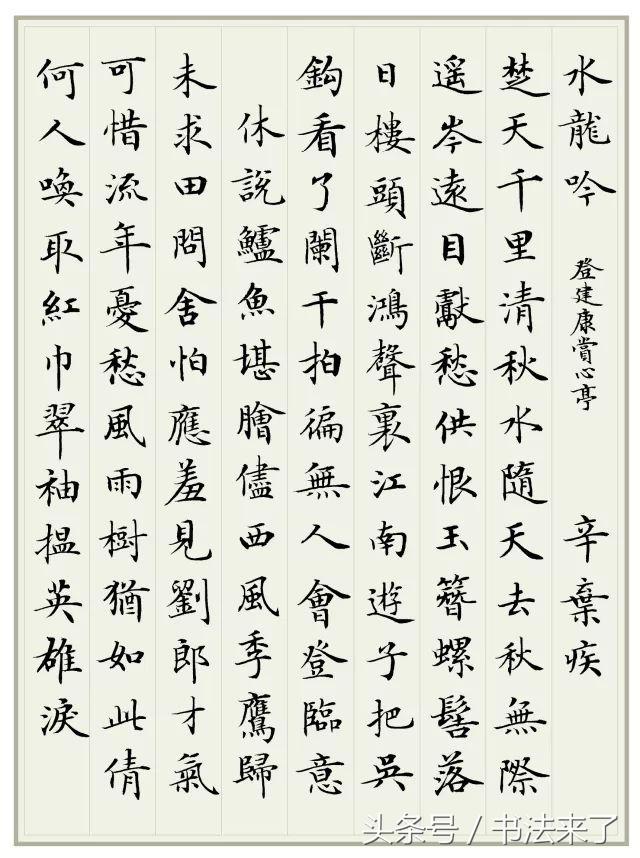 水龍吟 登建康賞心亭 辛棄疾
楚天千里清秋水隨天去秋無際
遥岑遠目獻愁供恨玉簪螺髻落
日樓頭斷鴻聲裏江南遊子把吳
鈎看了闌干拍徧無人會登臨意
休說鱸魚堪膾儘西風季鷹歸
未求田問舍怕應羞見劉郎才氣
可惜流年憂愁風雨樹猶如此倩
何人喚取紅巾翠袖揾英雄淚
头条号 / 书法来了